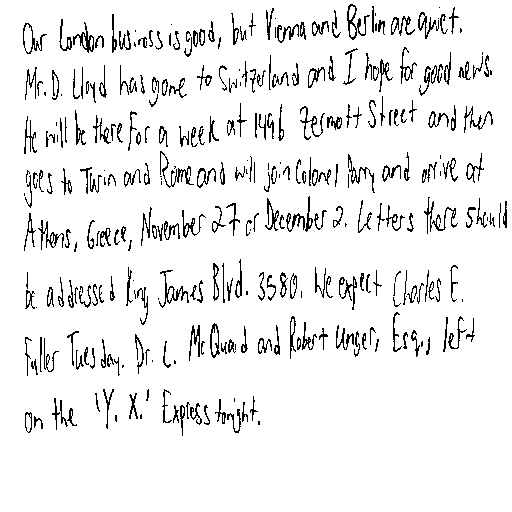 Our London business is good, but Vienna and Berlin are quiet.
Mr. D. Lloyd has gone to Switzerland and I hope for good news.
He will be there for a week at 1496 Zermott Street and then
goes to Turin and Rome and will join Colonel Parry and arrive at
Athens, Greece, November 27 or December 2. Letters there should
be addressed King James Blvd. 3580. We expect Charles E.
Fuller Tuesday. Dr. L. McQuaid and Robert Unger, Esq., left
on the 'Y. X.' Express tonight.